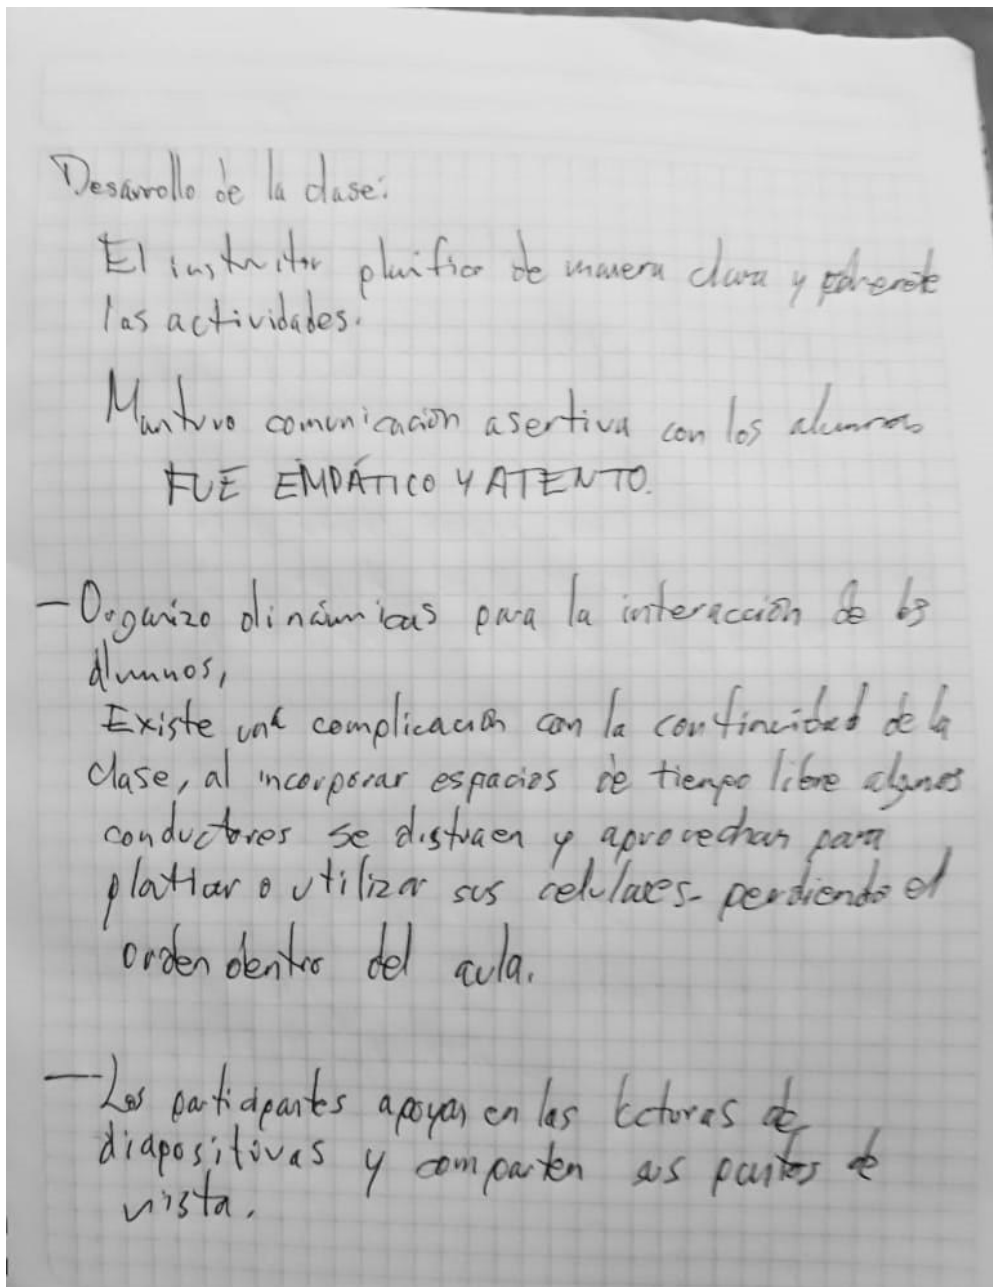 Desarrollo de la clase:
El instructor planifico de manera clara y coherente
las actividades.
Mantuvo comunicación asertiva con los alumnos
FUE EMPÁTICO Y ATENTO.
- Organizo dinámicas para la interacción de los
alumnos,
Existe una complicación con la continuidad de la
clase, al incorporar espacios de tiempo libre algunos
conductores se distraen y aprovechan para
platicar o utilizar sus celulares- perdiendo el
orden dentro del aula.
- Los participantes apoyan en las lecturas de
diapositivas y comparten sus puntos de
vista.